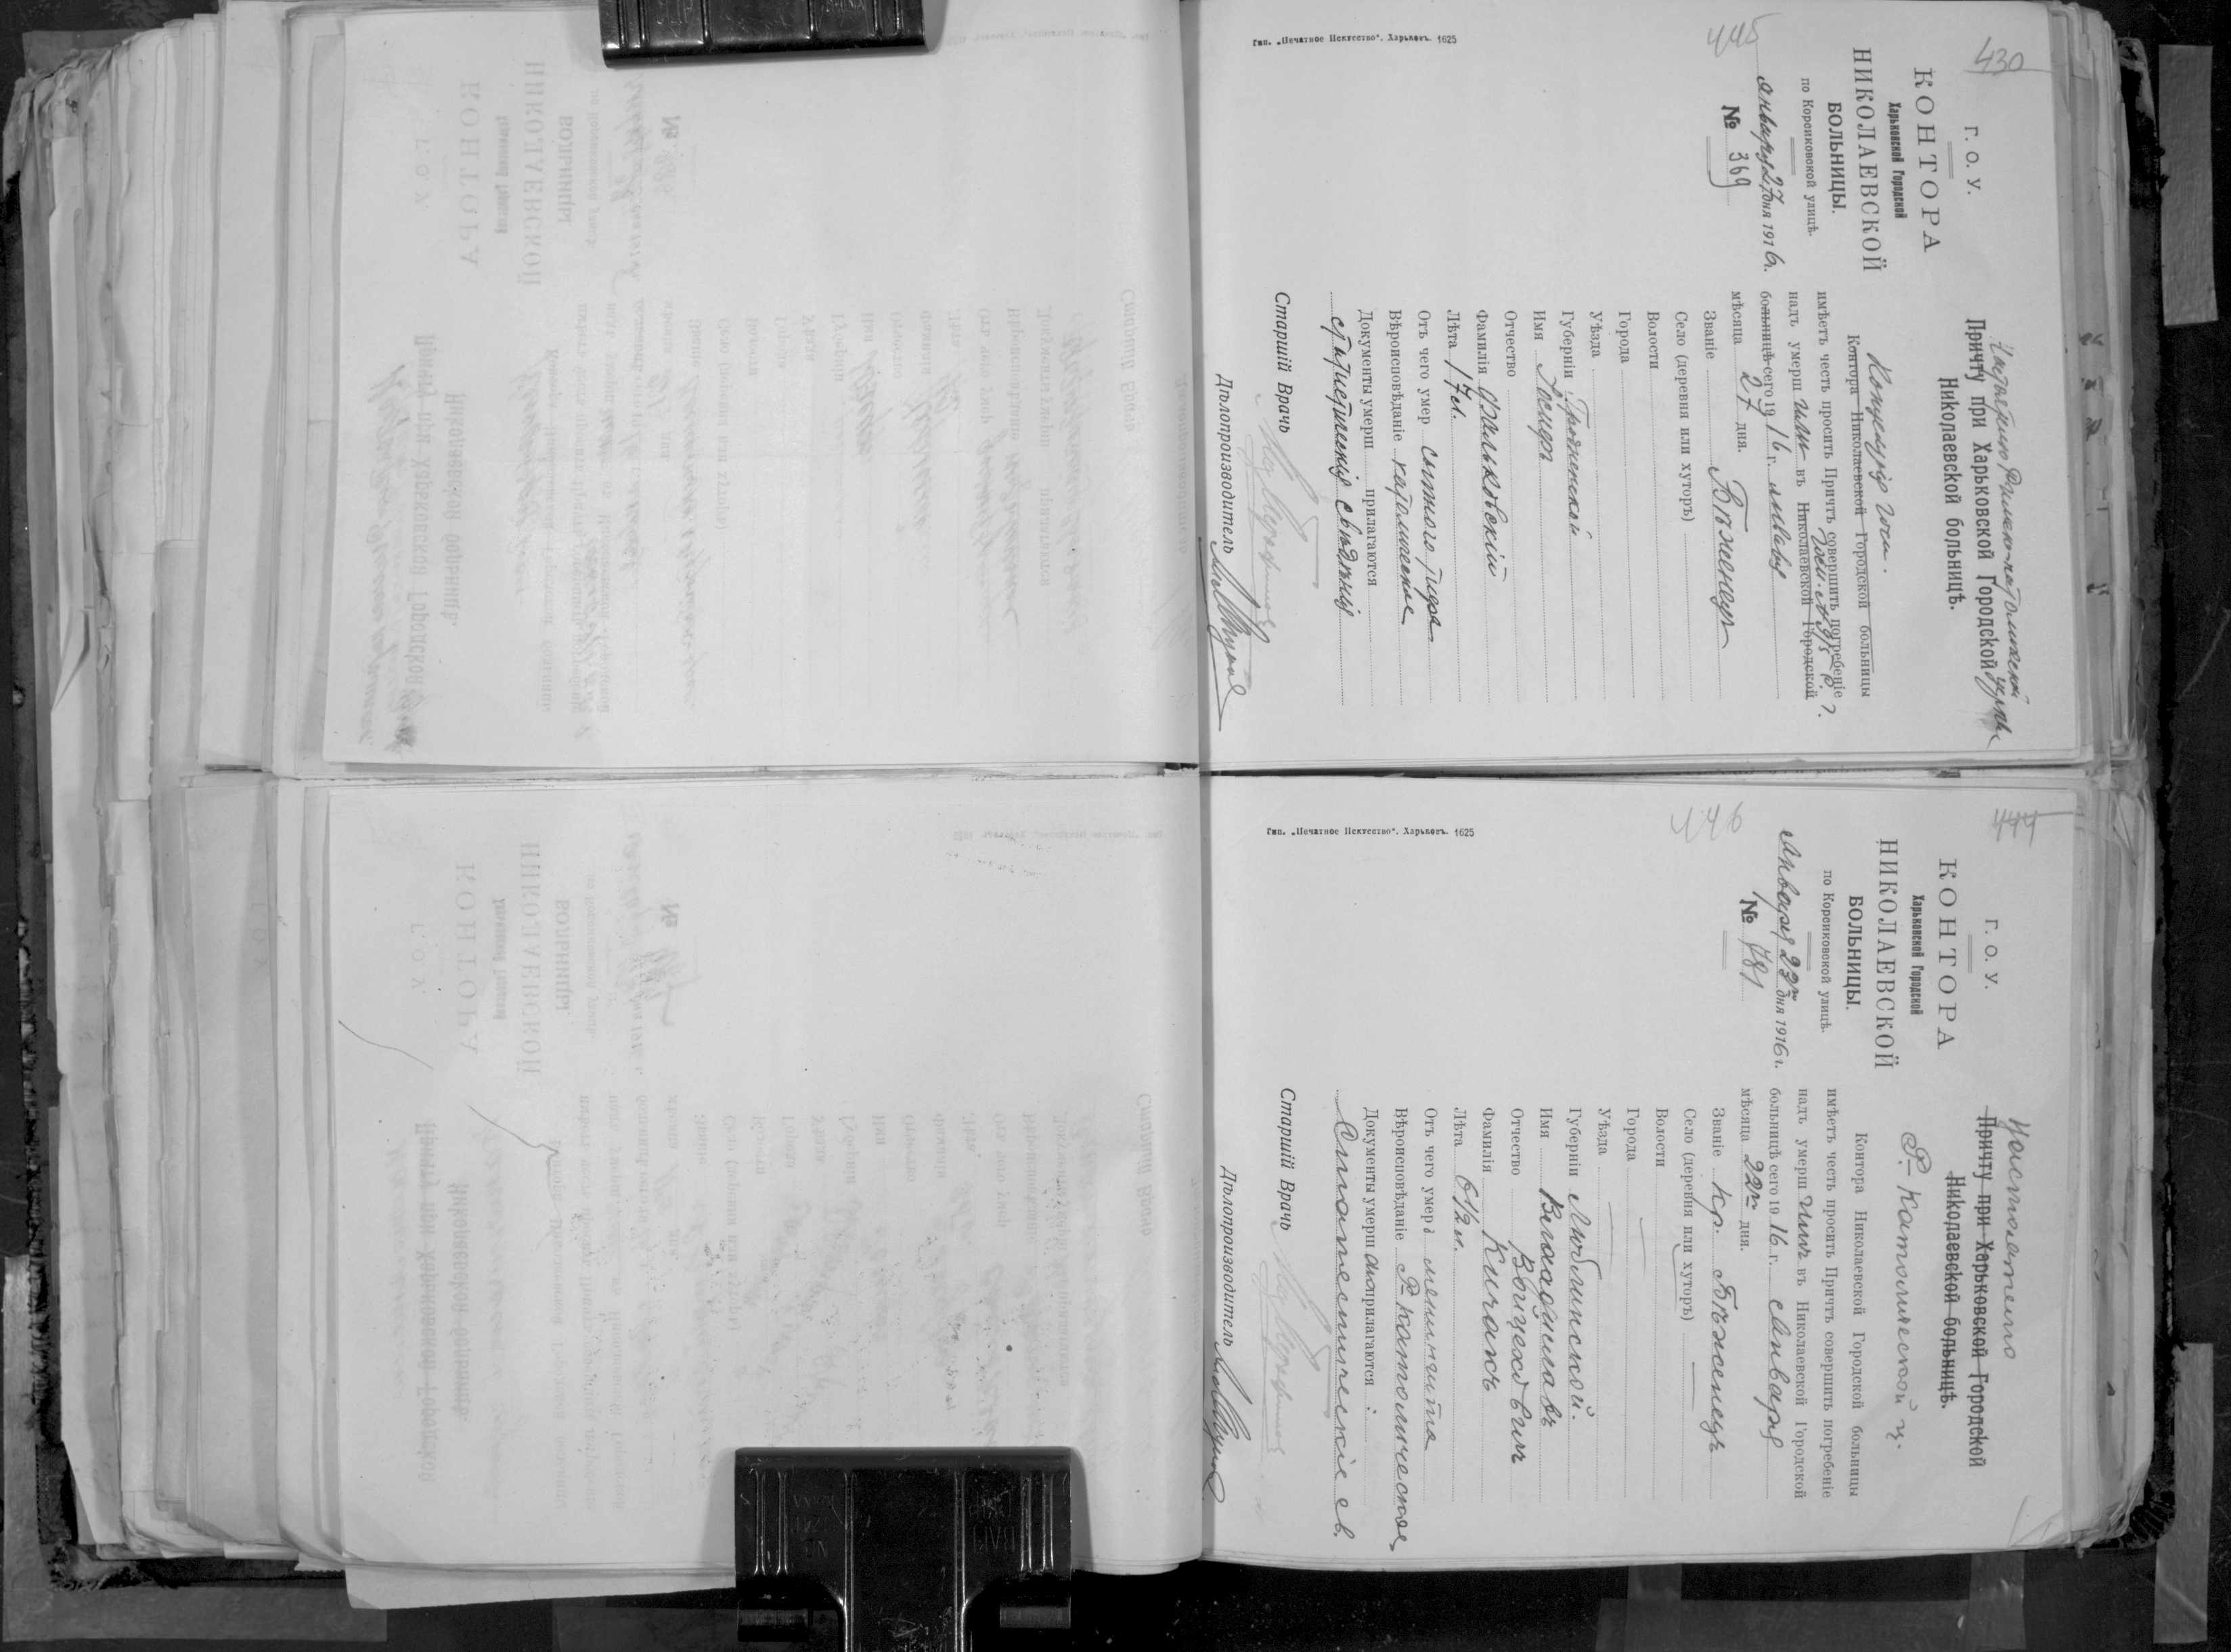 430
445
Г. О. У.
КОНТОРА
Харьковской Городской
НИКОЛАЕВСКОЙ
БОЛЬНИЦЫ.
по Корсиковской улицѣ.
января 27 дня 1916 г.
№ 369
Настоятелю Римско-католической церкви
Причту при Харьковской Городской
Николаевской больницѣ.
Контора Николаевской Городской больницы
имѣетъ честь просить Причтъ совершить погребеніе
надъ умерш имъ въ Николаевской Городской
больницѣ сего 1916 г. января
мѣсяца 27 дня.
Званіе Бѣженецъ
Село (деревня или хуторъ)
Волости
Города
Уѣзда
Губерніи Гродненской
Имя Іосифъ
Отчество
Фамилія Фальковскій
Лѣта 17 л.
Отъ чего умер сыпного тифа
Вѣроисповѣданіе католическое
Документы умерш прилагаются
статистическія свѣдѣнія
Старшій Врачъ
Дѣлопроизводитель
Тип. „Печатное Искусство“. Харьковъ. 1625
444
446
Г. О. У.
КОНТОРА
Харьковской Городской
НИКОЛАЕВСКОЙ
БОЛЬНИЦЫ.
по Корсиковской улицѣ.
Января 22го дня 1916 г.
№ 781
Настоятелю
Причту при Харьковской Городской
Николаевской больницѣ.
Р.-Католической ц.
Контора Николаевской Городской больницы
имѣетъ честь просить Причтъ совершить погребеніе
надъ умерш имъ въ Николаевской Городской
больницѣ сего 1916 г. Января
мѣсяца 22го дня.
Званіе Кр. Бѣженецъ
Село (деревня или хуторъ)
Волости
Города
Уѣзда
Губерніи Люблинской.
Имя Владиславъ
Отчество Войцеховичъ
Фамилія Кичакъ
Лѣта 6½ л.
Отъ чего умер менингита
Вѣроисповѣданіе Р. Католическое
Документы умерш аго прилагаются:
Статистическіе св.
Старшій Врачъ
Дѣлопроизводитель
Тип. „Печатное Искусство“. Харьковъ. 1625